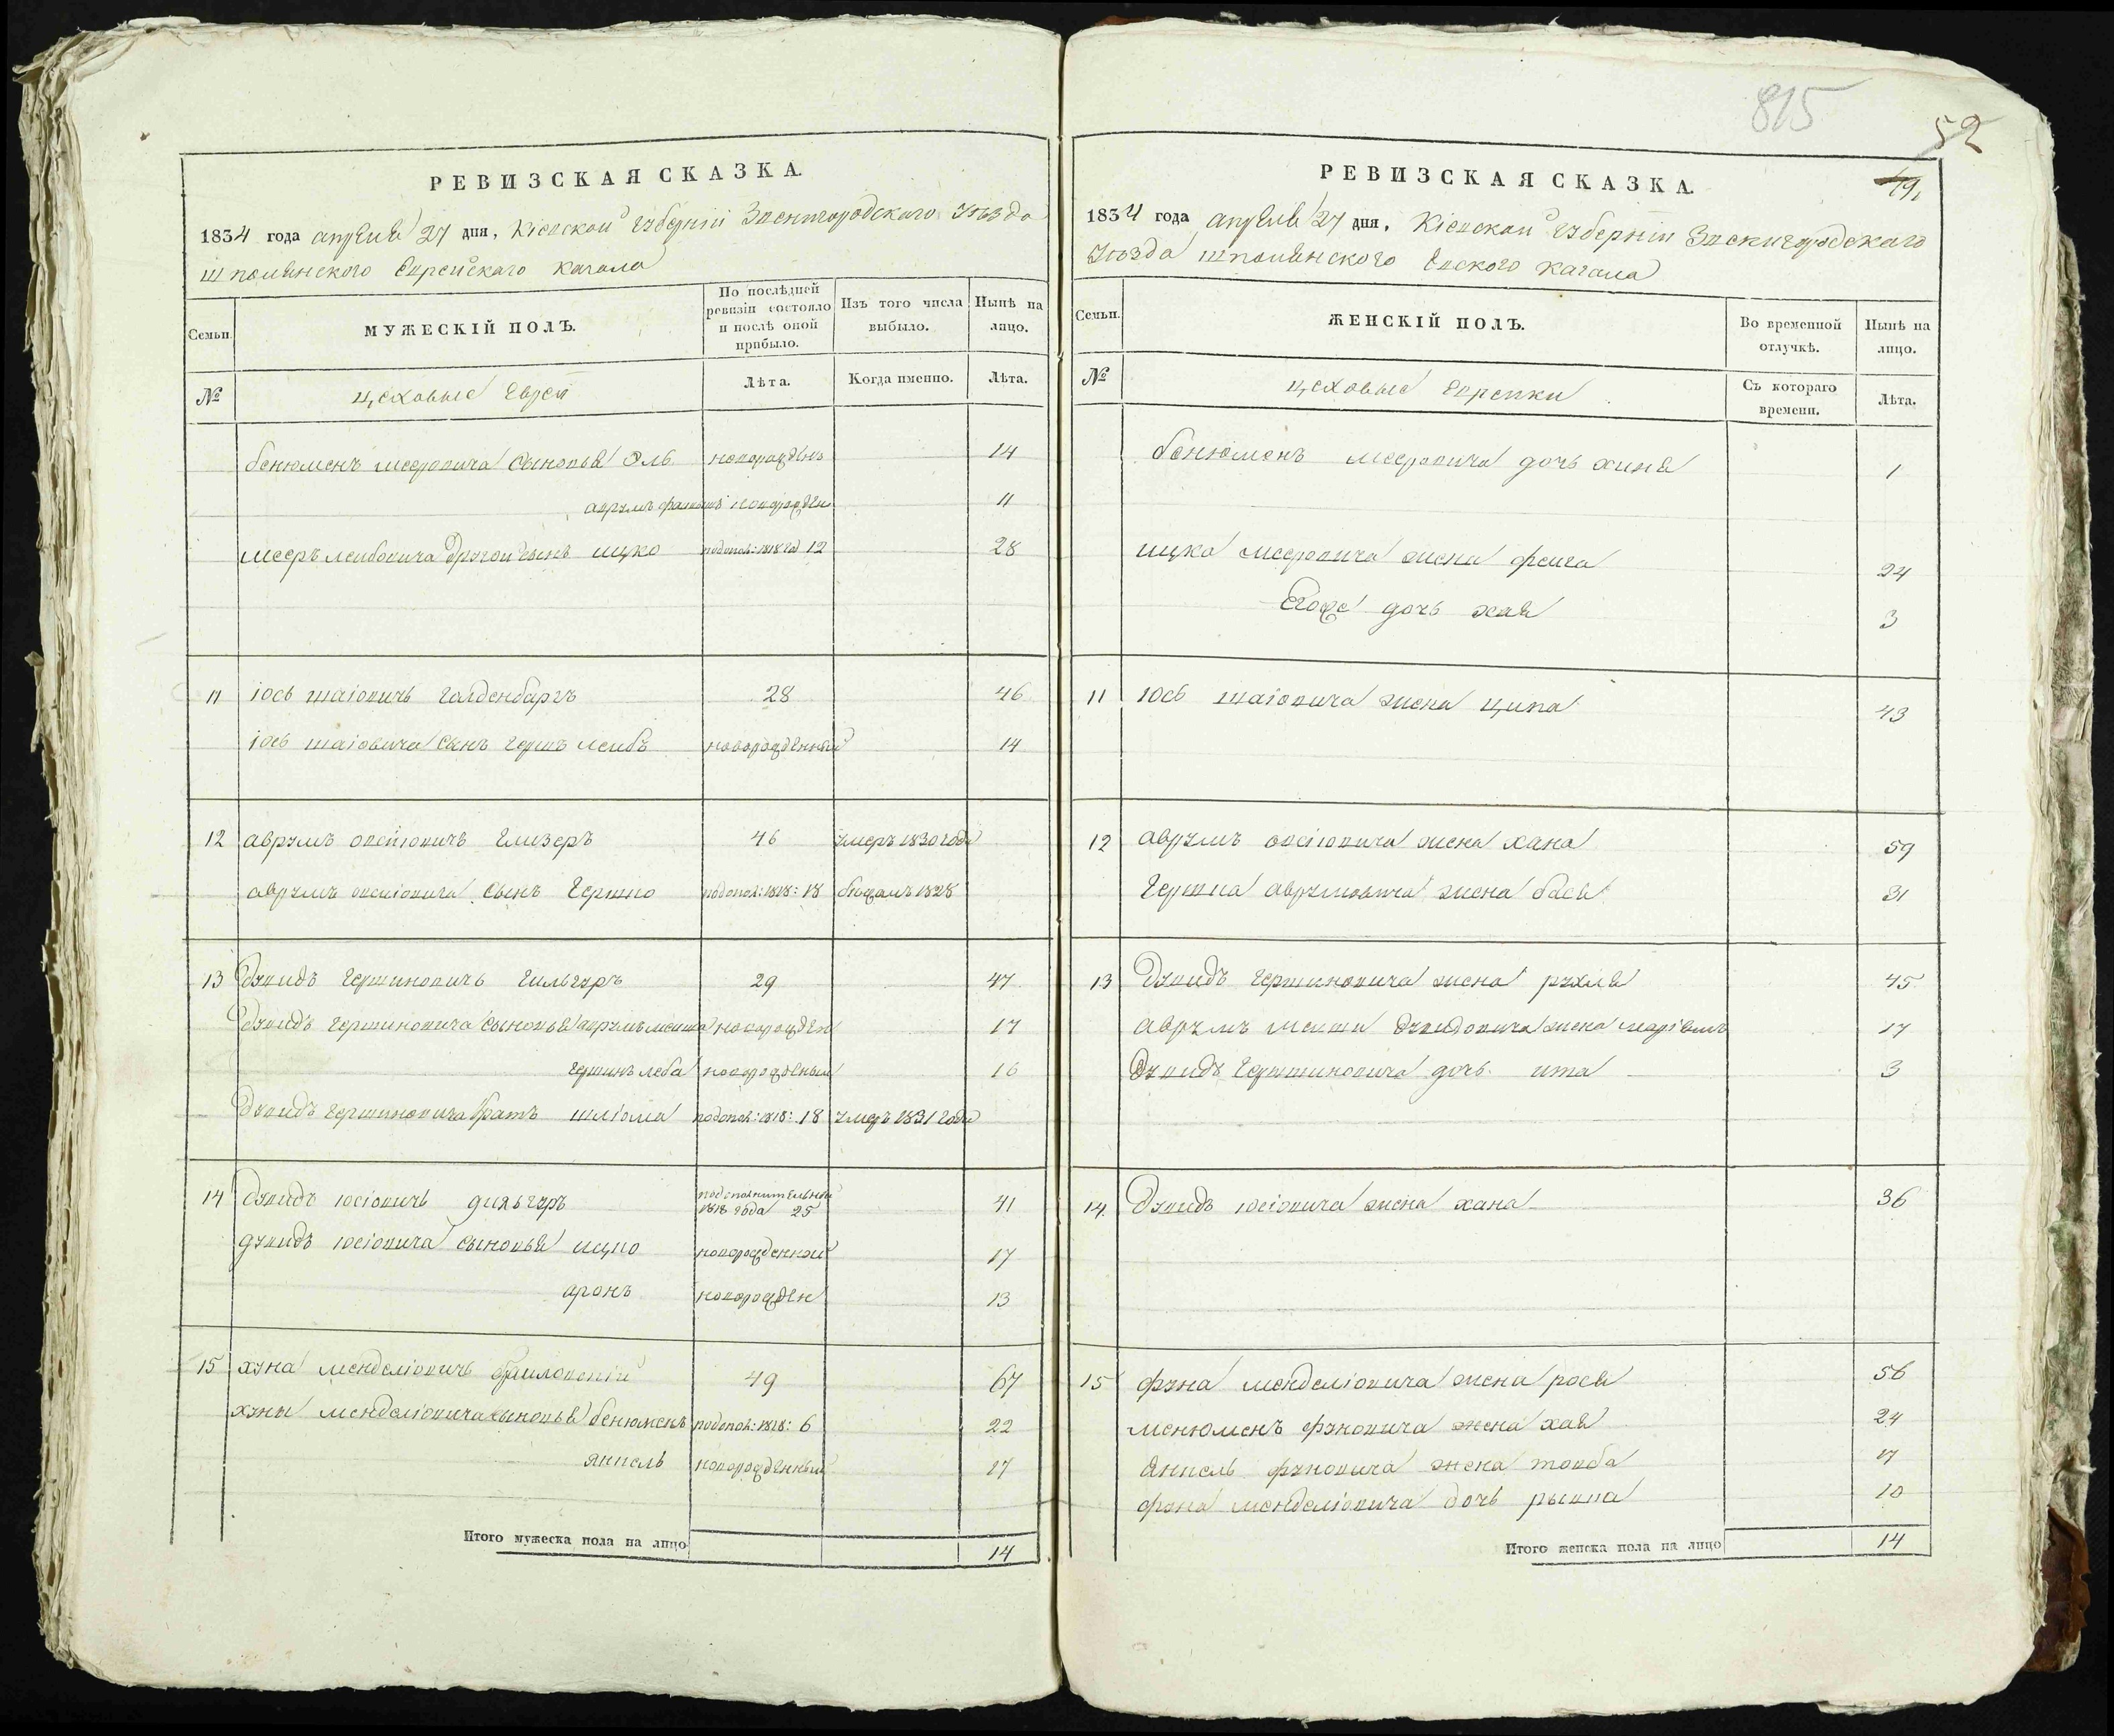 815
52
49
РЕВИЗСКАЯ СКАЗКА.
1834 года апреля 27 дня, Кіевской губерніи Звенигородского уѣзда
шполянского Еврейскаго кагала
Семьи.
МУЖЕСКІЙ ПОЛЪ.
По послѣдней ревизіи состояло и послѣ оной прибыло.
Изъ того числа выбыло.
Нынѣ на лицо.
№
цеховые Евреи
Лѣта.
Когда именно.
Лѣта.
бенюменъ мееровича сыновья Эль новорожденъ 14
аврумъ новорожден 11
мееръ лейбовича другой сынъ ицко подопол: 1818 год 12 28
11 іось шаіовичъ Галденбаргъ 28 46
іось шаіовича сынъ гершъ лейбъ новорожденный 14
12 аврумъ овсіиовичъ Глизеръ 46 умеръ 1830 года
аврумъ овсиіовича сынъ Гершко подопол: 1818: 18 бежалъ 1828
13 Дувидъ гершиковичъ Гильгуръ 29 47
Дувидъ гершиковича сыновья аврумъ мешш новорожден 17
новорожденый 16
Дувидъ гершиковича братъ шліома подопол: 1818: 18 умеръ 1831 года
14 Дувидъ іосіовичъ дополнительной 1818 года 25 41
дувидъ іосіовича сыновья ицко новорожденной 17
аронъ новорожден 13
15 хуна менделіовичъ 49 67
хуны менделіовича сыновья бенюменъ подопол: 1818: 6 22
янкель новорожденный 17
Итого мужеска пола на лицо 14
РЕВИЗСКАЯ СКАЗКА.
1834 года апреля 27 дня, Кіевской губерніи Звенигородскаго
уѣзда шполянского Евского кагала
Семьи.
ЖЕНСКІЙ ПОЛЪ.
Во временной отлучкѣ.
Нынѣ на лицо.
№
цеховые Еврейки
Съ котораго времени.
Лѣта.
бенюменъ мееровича дочь хиня 1
ицка мееровича жена фейга 24
Егоже дочь хая 3
11 іось шаіовича жена ципа 43
12 аврумъ овсіовича жена хана 59
Гершка аврумовича жена бася 31
13 Дувидъ гершиковича жена рухля 45
аврумъ Дувидовича жена маріямъ 17
Дувидъ Гершиковича дочь ита 3
14 Дувидъ іосіовича жена хана 36
15 фуна менделіовича жена рося 56
менюменъ фуновича жена хая 24
янкель фуновича жена товба 17
фуна менделіовича дочь рывка 10
Итого женска пола на лицо 14